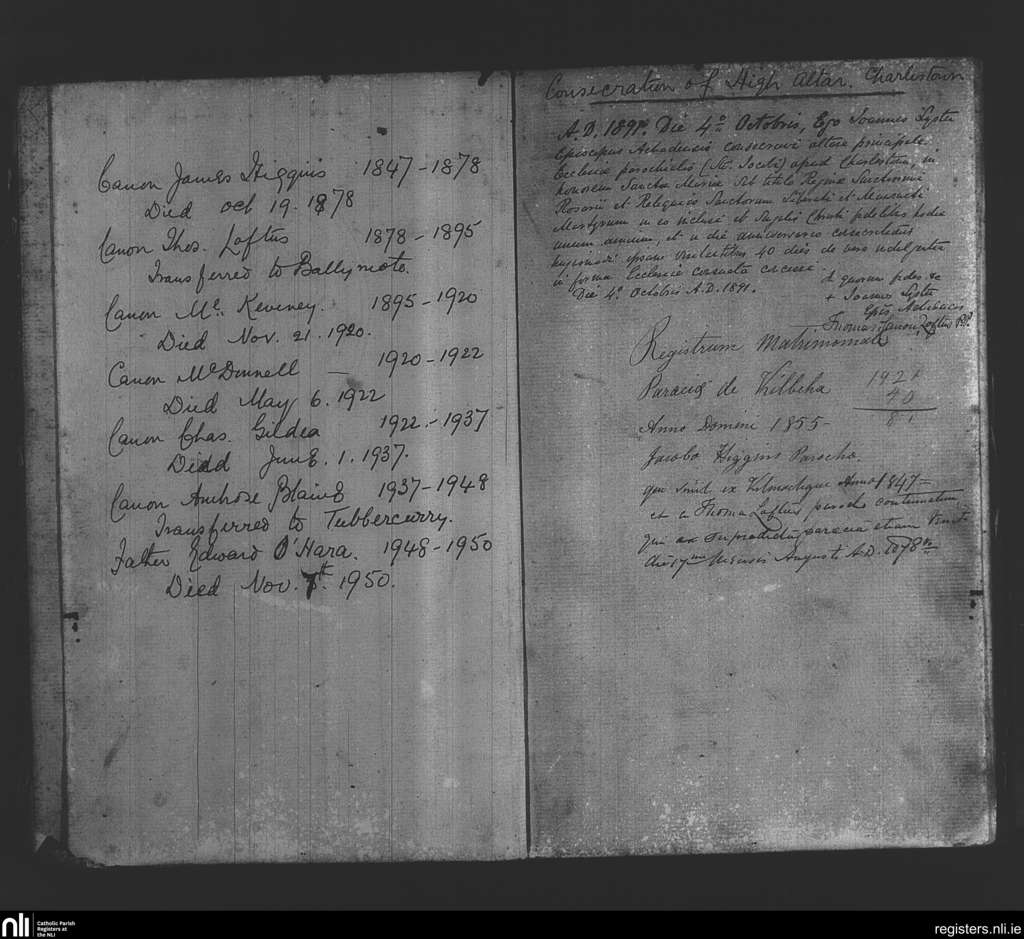 Canon James Higgins 1847-1878
Died Oct 19. 1878
Canon Thos. Loftus 1878-1895
Transferred to Ballymote.
Canon Mc. Keveney. 1895-1920
Died Nov. 21. 1920.
Canon McDonnell — 1920-1922
Died May 6. 1922
Canon Chas. Gildea 1922-1937
Died June. 1. 1937.
Canon Ambrose Blaine 1937-1948
Transferred to Tubbercurry.
Father Edward O'Hara. 1948-1950
Died Nov. 7th. 1950.
Consecration of High Altar. Charlestown
A.D. 1891. Die 4o Octobris, Ego Joannes Lyster
Episcopus Achadensis consecravi altare principale
Ecclesiae parochialis (Sti. Jacobi) apud Charlestown, in
honorem Sanctae Mariae sub titulo Reginae Sanctissimi
Rosarii et Reliquias Sanctorum Liberati et
Martyrum in eo inclusi et singulis Christi fidelibus hodie
unum annum, et in die anniversario consecrationis
hujusmodi ipsum visitantibus 40 dies de vera indulgentia
in forma Ecclesiae consueta concessi.
Die 4o Octobris A.D. 1891.
In quorum fides &c
+ Joannes Lyster
Eps. Achadensis
Thomas Canon Loftus P.P.
Registrum Matrimoniale
Paraciae de Kilbeha
1921
40
81
Anno Domini 1855-
Jacobo Higgins Parocho.
Anno 1847-
et a Thoma Loftus parocho continuatum
qui ex
die 17mo Mensis Augusti A.D. 1878
nli
Catholic Parish
Registers at
the NLI
registers.nli.ie